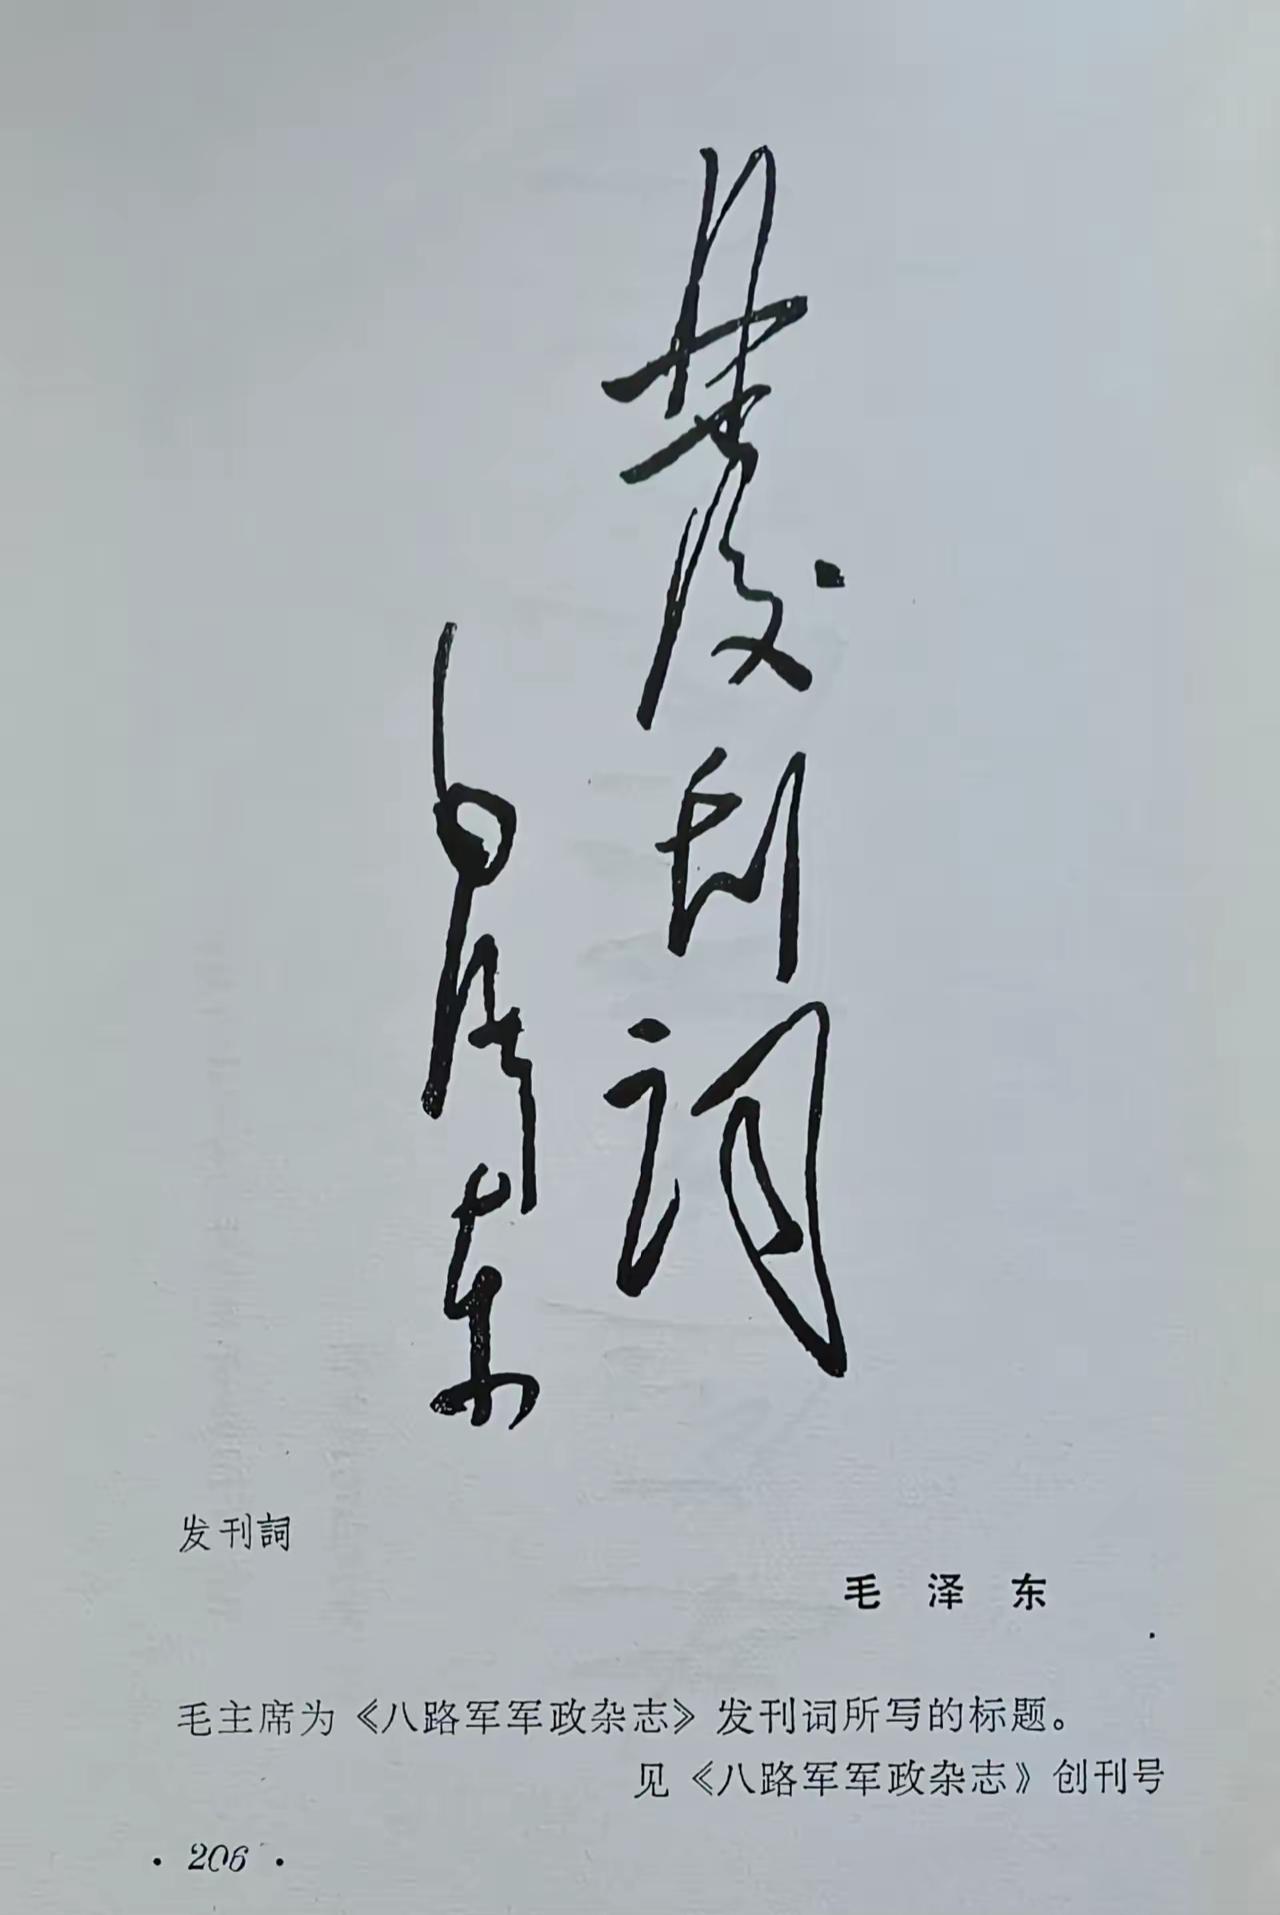 發刊詞
毛泽东
发刊詞
毛泽东
毛主席为《八路军军政杂志》发刊词所写的标题。
见《八路军军政杂志》创刊号
·206·